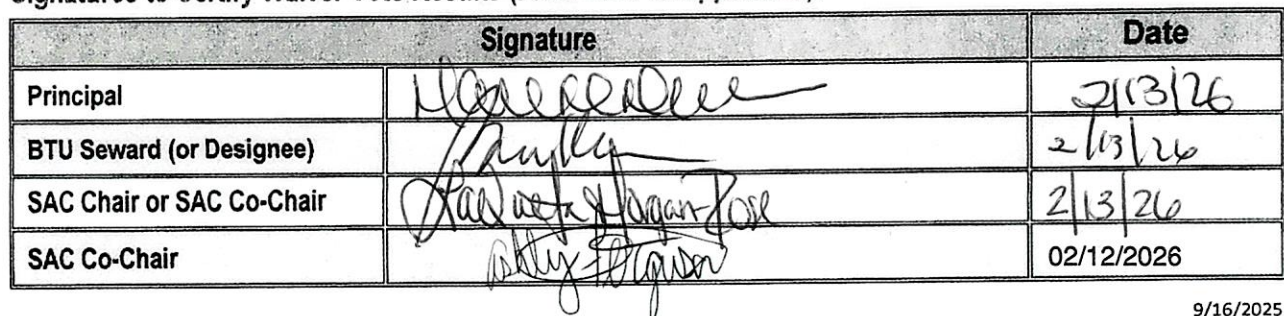 Signature Date
Principal 2/13/26
BTU Seward (or Designee) 2/13/26
SAC Chair or SAC Co-Chair LaQueta Horgan-Rose 2/13/26
SAC Co-Chair Ashly Ferguson 02/12/2026
9/16/2025